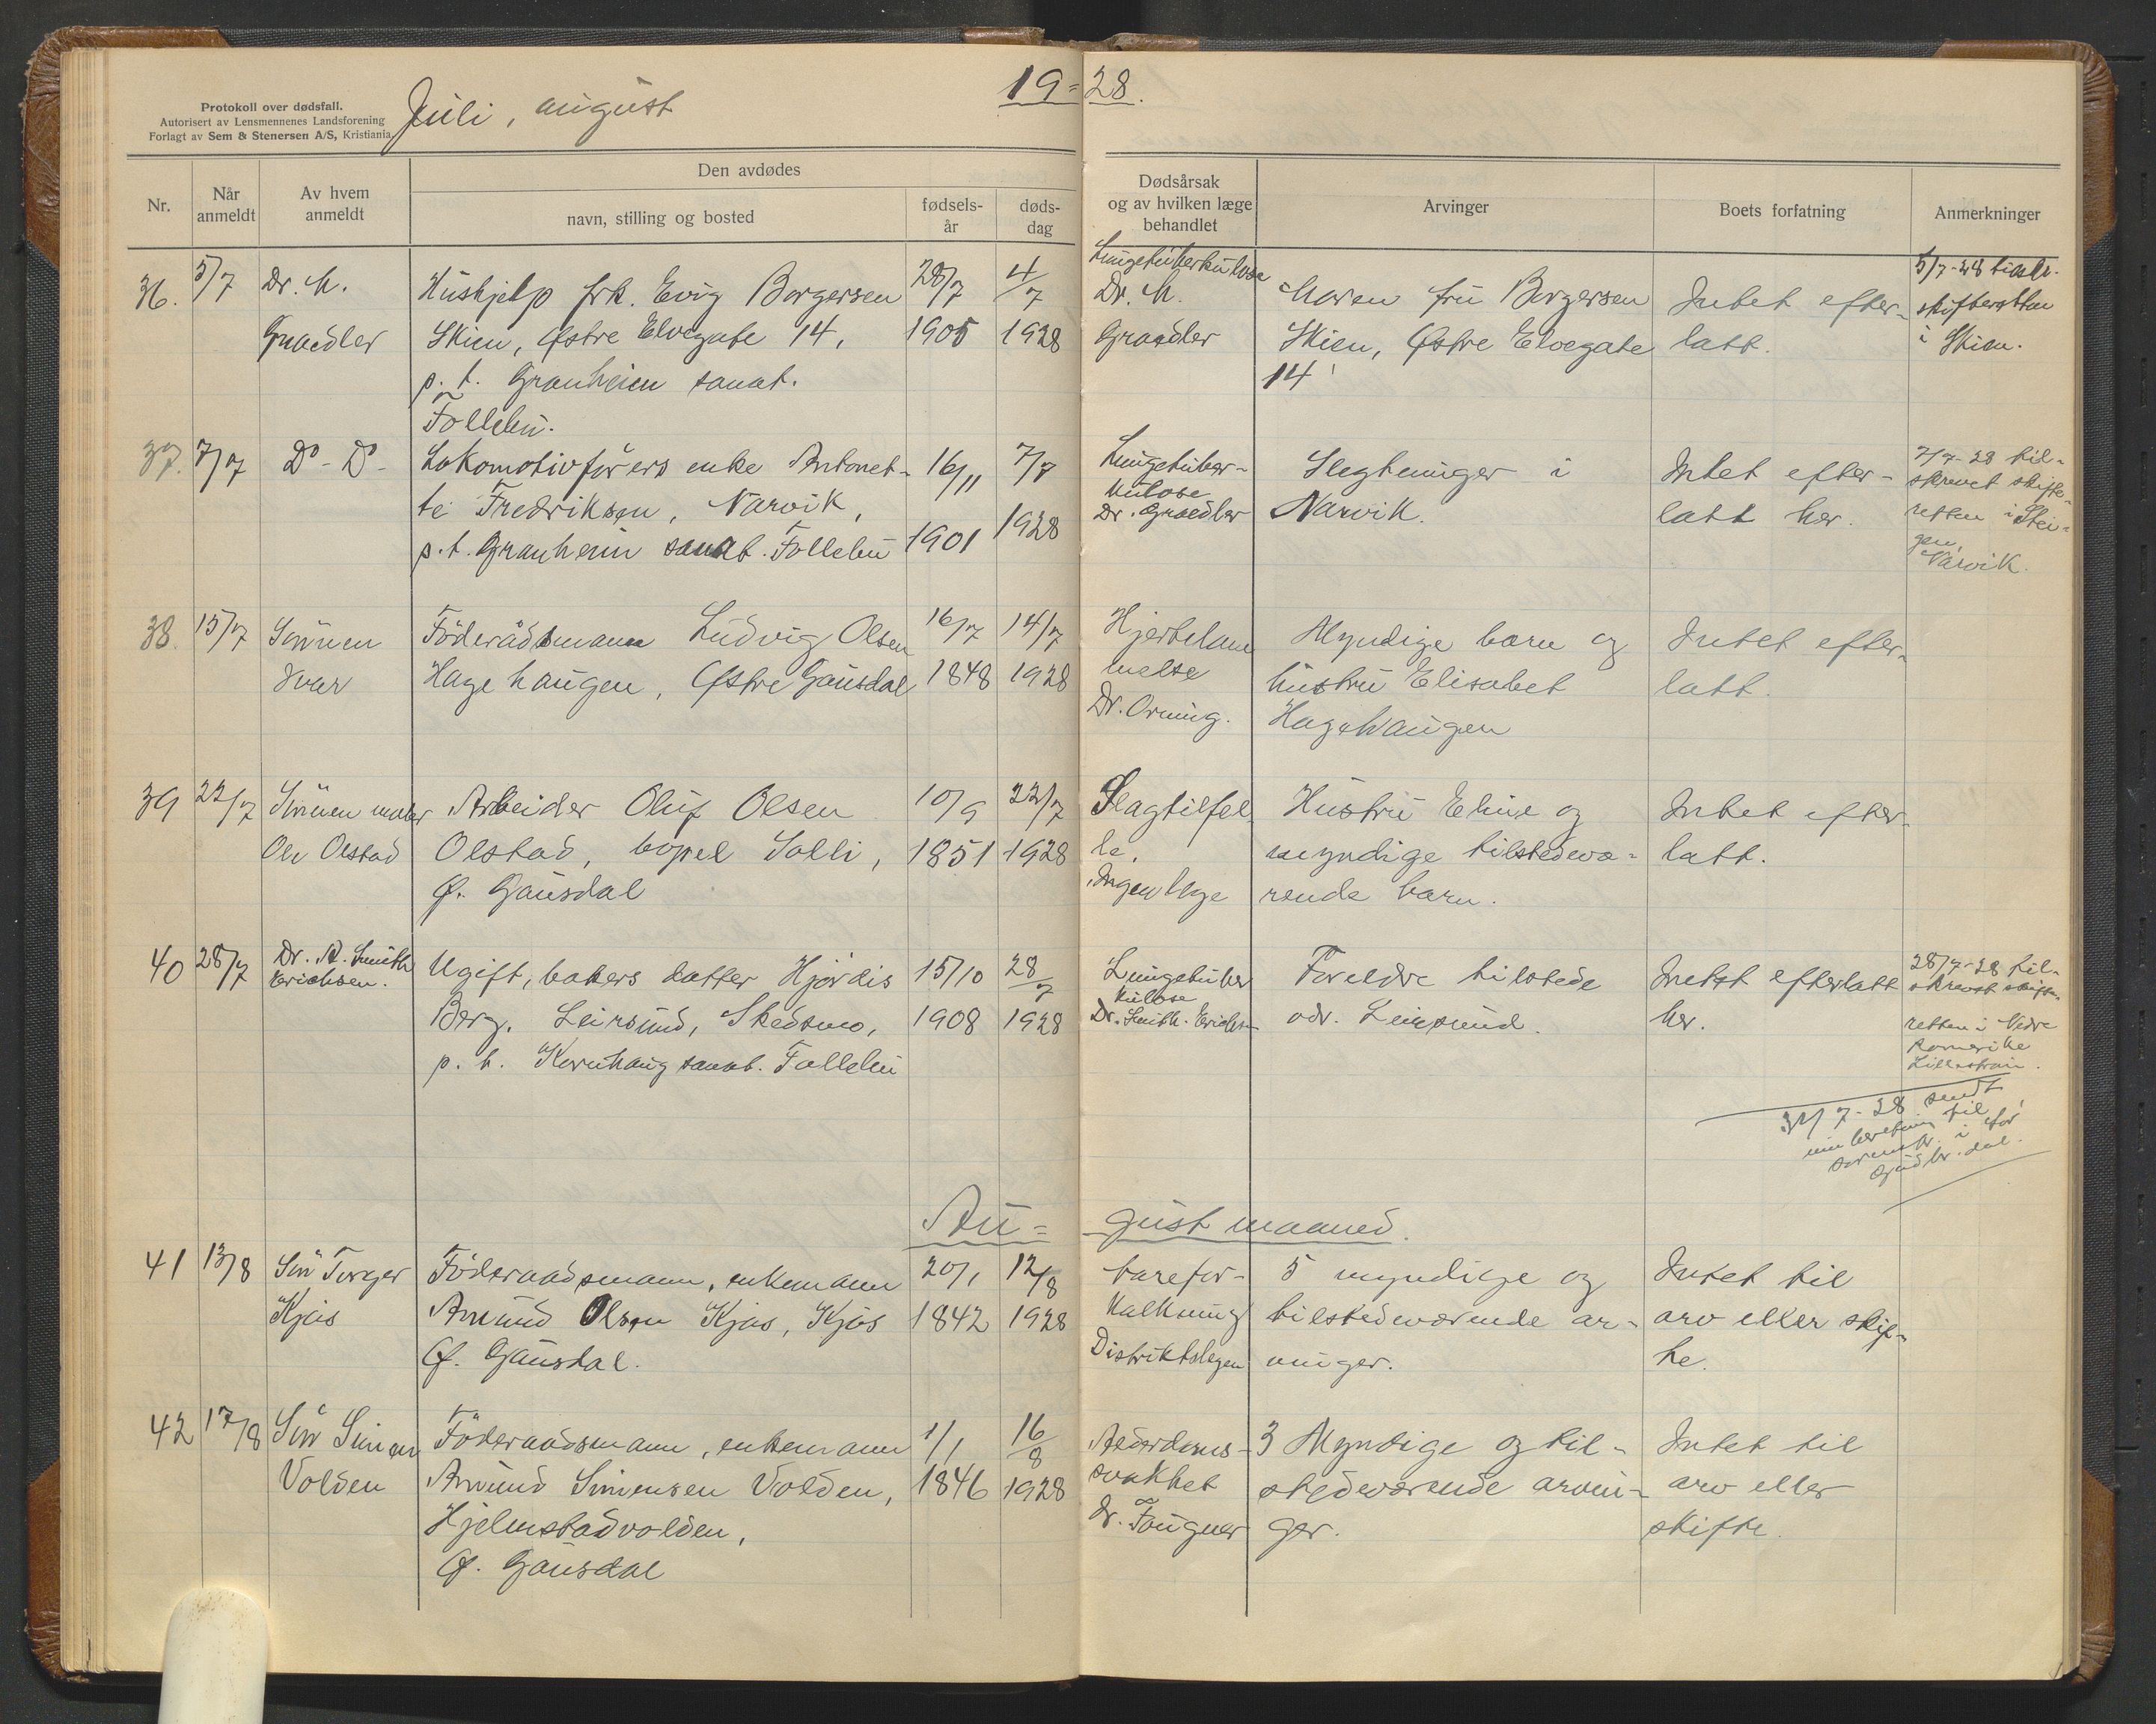 19-28.
Protokoll over dødsfall.
Autorisert av Lensmennenes Landsforening
Forlagt av Sem & Stenersen A/S, Kristiania.
Juli, august
Nr.
Når anmeldt
Av hvem anmeldt
Den avdødes
navn, stilling og bosted
fødsels-
år
døds-
dag
Dødsårsak
og av hvilken læge
behandlet
Arvinger
Boets forfatning
Anmerkninger
36.
5/7
Dr. M.
Graedler
Hushjelp frk. Evig Borgersen
Skien, Østre Elvegate 14,
p. t. Granheim sanat.
Follebu.
28/7
1905
4/7
1928
Lungetuberkulose
Dr. M.
Graedler
Moren fru Borgersen
Skien, Østre Elvegate
14
Intet efter-
latt.
5/7-28
skifteretten
i Skien.
37.
7/7
Do - Do -
Lokomotivførers enke Antonet-
te Fredriksen, Narvik,
p.t. Granheim sanat. Follebu
16/11
1901
7/7
1928
Lungetuber-
kulose
Dr. Graedler
Slegtninger i
Narvik.
Intet efter-
latt her.
7/7-28 til-
skrevet skifte-
retten i Stei-
gen,
Narvik.
38.
15/7
Sønnen
Ivar
Föderådsmann Ludvig Olsen
Hagehaugen, Østre Gausdal
16/7
1848
14/7
1928
Hjertelam
melse
Dr. Orning.
Myndige barn og
hustru Elisabet
Hagehaugen
Intet efter-
latt.
39
22/7
Sønnen maler
Ole Olstad
Arbeider Oluf Olsen
Olstad, bopel Solli,
Ø. Gausdal
10/9
1851
22/7
1928
Slagtilfel
le.
Ingen lege
Hustru Eline og
myndige tilstedevæ-
rende barn.
Intet efter-
latt.
40
28/7
Dr. A. Smith
Erichsen.
Ugift, bakers datter Hjördis
Berg. Leirsund, Skedsmo,
p. t. Kornhaug sanat. Follebu
15/10
1908
28/7
1928
Lungetuber
kulose
Dr. Smith-Erichsen
Foreldre tilstede
adr. Leirsund.
Intet efterlatt
her.
28/7-28 til-
skrevet skifte-
retten i Nedre
Romerike
Lillestrøm.
31/7-28 sendt
innberetning til
sorenskr. i for
Gudbr.dal.
August maaned.
41
13/8
Sön Torger
Kjøs
Föderaadsmann, enkemann
Amund Olsen Kjøs, Kjøs
Ø. Gausdal.
20/1
1842
12/8
1928
Aarefor-
kalkning
Distriktslegen
5 myndige og
tilstedeværende ar-
vinger.
Intet til
arv eller skif-
te.
42
17/8
Sön Simen
Volden
Föderaadsmann, enkemann
Amund Simensen Volden,
Hjelmstadvolden,
Ø. Gausdal
1/1
1846
16/8
1928
Alderdoms-
svakhet
Dr. Fougner
3 Myndige og til-
stedeværende arvin-
ger.
Intet til
arv eller
skifte.